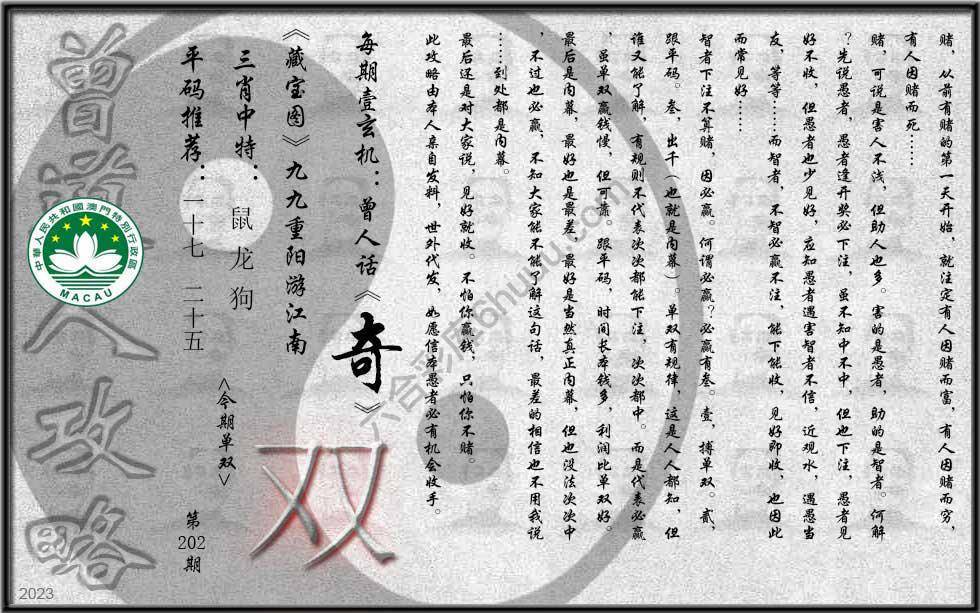 赌，从前有赌的第一天开始，就注定有人因赌而富，有人因赌而穷，
有人因赌而死……
赌，可说是害人不浅，但助人也多。害的是愚者，助的是智者。何解
？先说愚者，愚者逢开奖必下注，虽不知中不中，但也下注，愚者见
好不收，但愚者也少见好，应知愚者遇害智者不信，近观水，遇愚当
友，等等……而智者，不智必赢不注，能下能收，见好即收，也因此
而常见好……
智者下注不算赌，因必赢。何谓必赢？必赢有叁。壹，搏单双。贰，
跟平码。叁，出千（也就是内幕）。单双有规律，这是人人都知，但
谁又能了解，有规则不代表次次都能下注，次次都中。而是代表必赢
，虽单双赢钱慢，但可靠。跟平码，时间长本钱多，利润比单双好。
最后是内幕，最好也是最差，最好是当然真正内幕，但也没法次次中
，不过也必赢，不知大家能不能了解这句话，最差的相信也不用我说
……到处都是内幕。
最后还是对大家说，见好就收。不怕你赢钱，只怕你不赌。
此攻略由本人亲自发料，世外代发，如愿信本愚者必有机会收手。
每期壹玄机：曾人话《奇》
《藏宝图》九九重阳游江南
三肖中特：鼠龙狗
平码推荐：一十七 二十五
<今期单双>
双
第202期
曾道人攻略
中華人民共和國澳門特別行政區
MACAU
六合彩库6huhu.com
2023